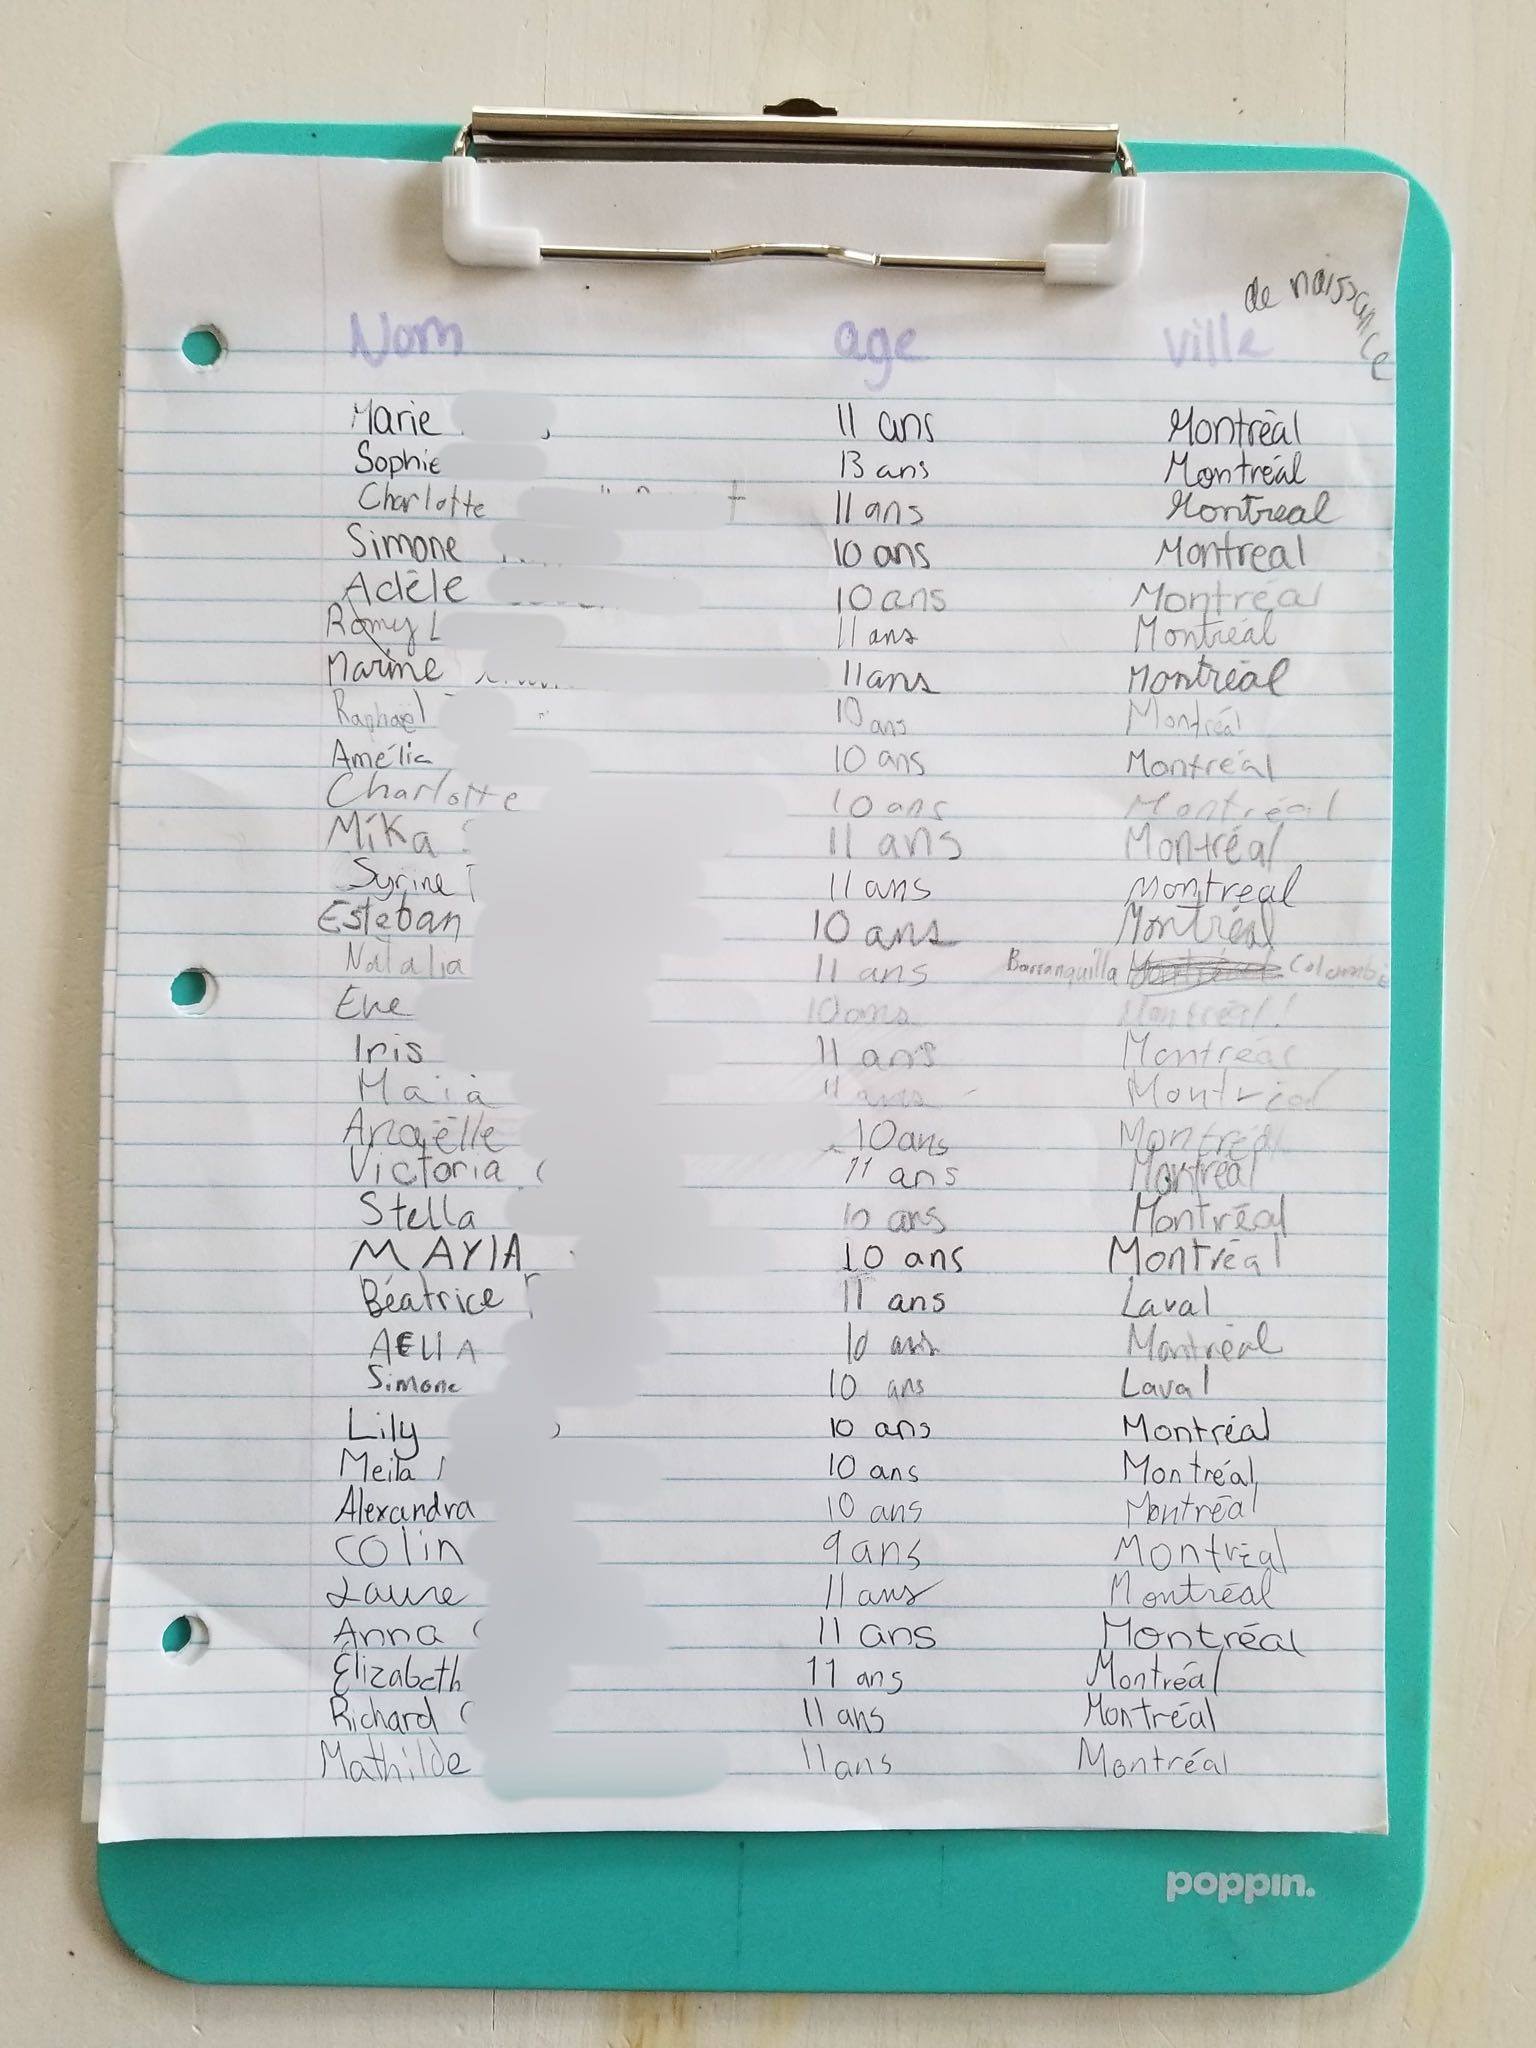 de naissance
Nom age ville
Marie 11 ans Montréal
Sophie 13 ans Montréal
Charlotte 11 ans Montreal
Simone 10 ans Montreal
Adèle 10 ans Montréal
Romy L 11 ans Montréal
Marine 11 ans Montréal
Raphaël 10 ans Montréal
Amélia 10 ans Montréal
Charlotte 10 ans Montréal
Mika 11 ans Montréal
Syrine 11 ans Montreal
Esteban 10 ans Montréal
Natalia 11 ans Barranquilla Colombie
Eve 10 ans Montréal!
Iris 11 ans Montréal
Maia 11 ans Montréal
Anaëlle 10 ans Montréal
Victoria 11 ans Montréal
Stella 10 ans Montréal
MAYIA 10 ans Montréal
Béatrice 11 ans Laval
AEllA 10 ans Montréal
Simone 10 ans Laval
Lily 10 ans Montréal
Meila 10 ans Montréal
Alexandra 10 ans Montréal
Colin 9 ans Montréal
Laure 11 ans Montréal
Anna 11 ans Montréal
Élizabeth 11 ans Montréal
Richard 11 ans Montréal
Mathilde 11 ans Montréal
poppin.